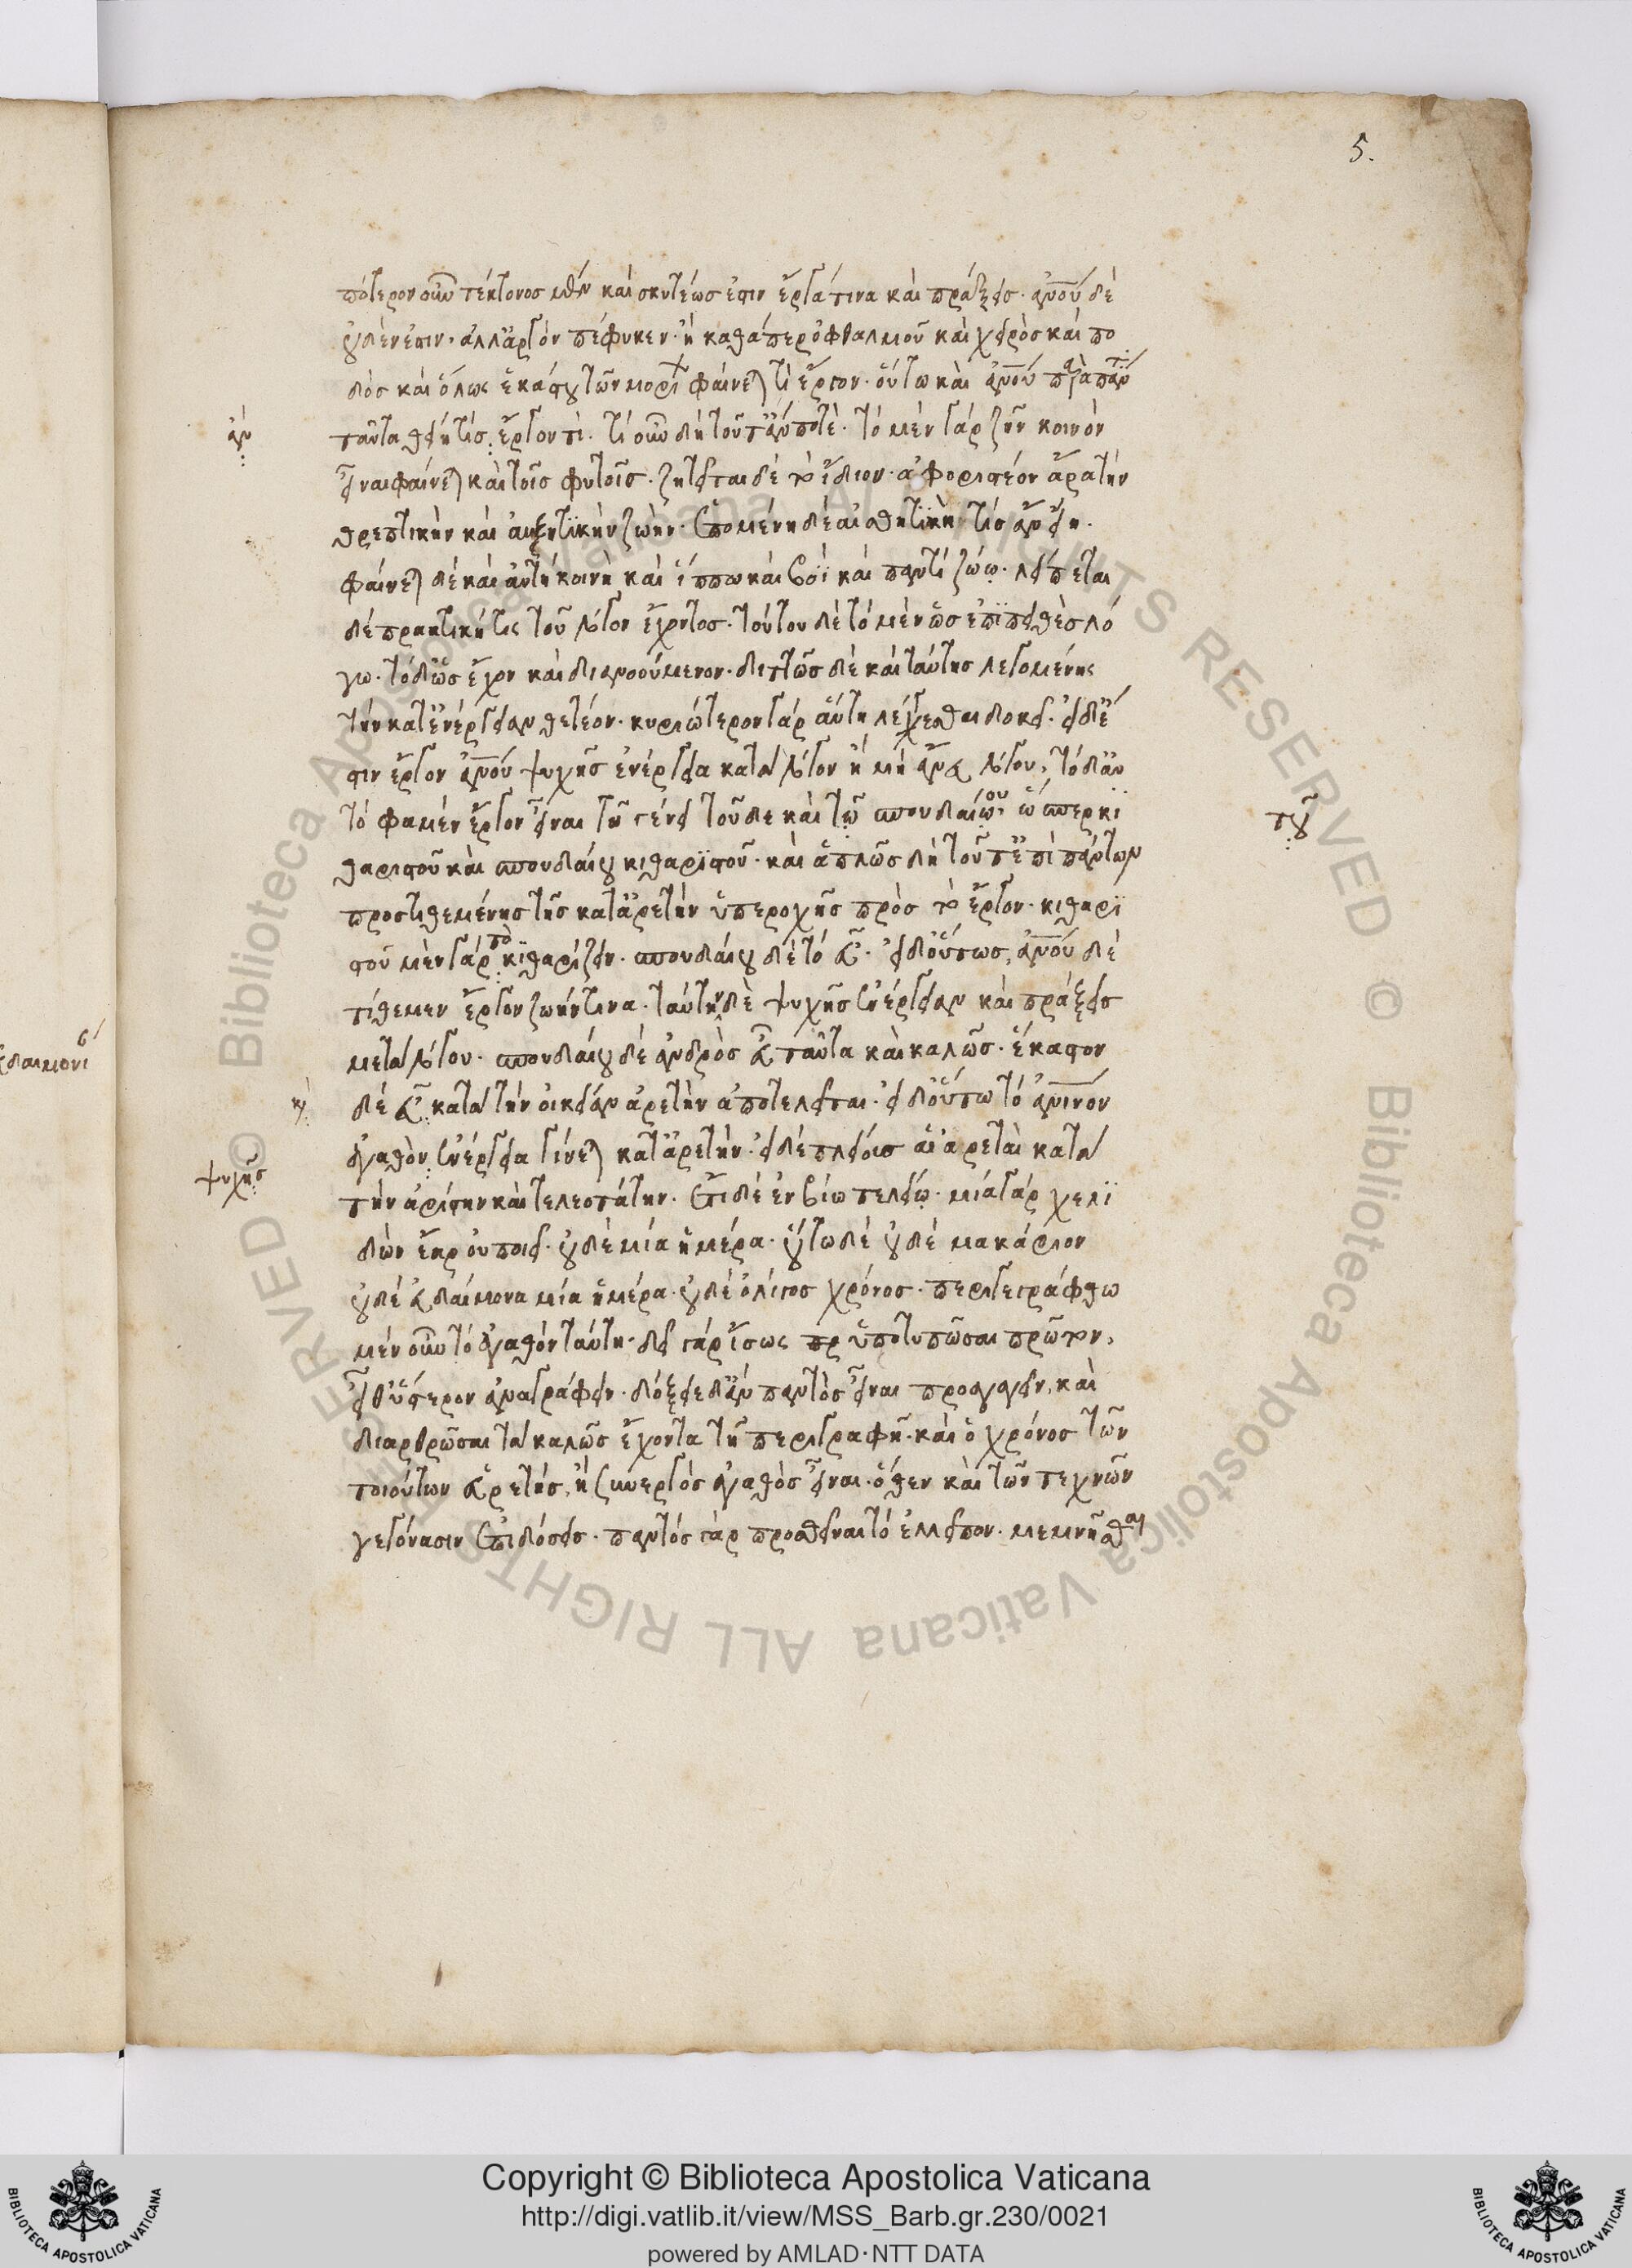 5.
πότερον οὖν τέκτονος μὲν καὶ σκυτέως ἐστὶν ἔργά τινα καὶ πράξεις· ἀνου δὲ
οὐδὲν ἐστιν· ἀλλ' ἀργὸν πέφυκεν· ἢ καθάπερ ὀφθαλμοῦ καὶ χειρὸς καὶ πο
δὸς καὶ ὅλως ἑκάστου τῶν μορί φαίνεται τὶ ἔργον· οὕτω καὶ ἀνου παρὰ πάν
ἂν
ταῦτα θείη τίς ἔργον τὶ· τί οὖν δὴ τοῦτ' ἂν ποτὲ· τὸ μὲν γὰρ ζῆν κοινὸν
εἶναι φαίνεται καὶ τοῖς φυτοῖς· ζητεῖται δὲ τὸ ἴδιον· ἀφοριστέον ἄρα τὴν
θρεπτικὴν καὶ αὐξητικὴν ζωήν· ἑπομένη δὲ αἰσθητικὴ τίς ἂν εἴη·
φαίνεται δὲ καὶ αὐτὴ κοινὴ καὶ ἵππω καὶ βοῒ καὶ παντὶ ζώω· λείπεται
δὲ πρακτικὴ τις τοῦ λόγον ἔχοντος· τούτου δὲ τὸ μὲν ὡς ἐπιπειθὲς λό
γω· τὸ δ' ὡς ἔχον καὶ διανοούμενον· διττῶς δὲ καὶ ταύτης λεγομένης
τὴν κατ' ἐνέργειαν θετέον· κυριώτερον γὰρ αὕτη λέγεσθαι δοκεῖ· εἰ δ' ἔ
στιν ἔργον ἀνου ψυχῆς ἐνέργεια κατὰ λόγον ἢ μὴ ἄνευ λόγου, τὸ δ' αὐ
τὸ φαμὲν ἔργον εἶναι τῆ γένει τοῦδε καὶ τῶ σπουδαίω, ὥσπερ κι
του
θαριστοῦ καὶ σπουδαίου κιθαριστοῦ· καὶ ἁπλῶς δὴ τοῦτ' ἐπὶ πάντων
προστιθεμένης τῆς κατ' ἀρετὴν ὑπεροχῆς πρὸς τὸ ἔργον· κιθαρι
στοῦ μὲν γὰρ τὸ κιθαρίζειν· σπουδαίου δὲ τὸ εὖ· εἰ δ' οὕτως, ἀνου δὲ
τίθεμεν ἔργον ζωήν τινα· ταύτην δὲ ψυχῆς ἐνέργειαν καὶ πράξεις
μετὰ λόγου· σπουδαίου δὲ ἀνδρὸς εὖ ταῦτα καὶ καλῶς· ἕκαστον
κὶ
δὲ εὖ κατὰ τὴν οἰκείαν ἀρετὴν ἀποτελεῖται· εἰ δ' οὕτω τὸ ἀνινον
ψυχῆς
ἀγαθὸν ἐνέργεια γίνεται κατ' ἀρετὴν· εἰ δὲ πλείους αἱ ἀρεταὶ κατὰ
τὴν ἀρίστην καὶ τελεοτάτην· ἔτι δὲ ἐν βίω τελείω· μία γὰρ χελι
δὼν ἔαρ οὐ ποιεῖ· οὐδὲ μία ἡμέρα· οὕτω δὲ οὐδὲ μακάριον
οὐδὲ εὐδαίμονα μία ἡμέρα· οὐδὲ ὀλίγος χρόνος· περιγεγράφθω
μὲν οὖν τὸ ἀγαθὸν ταύτη· δεῖ γὰρ ἴσως ὑποτυπῶσαι πρῶτον,
εἶθ' ὕστερον ἀναγράφειν· δόξειε δ' ἂν παντὸς εἶναι προαγαγεῖν, καὶ
διαρθρῶσαι τὰ καλῶς ἔχοντα τῆ περιγραφῆ· καὶ ὁ χρόνος τῶν
τοιούτων εὑρετής, ἢ συνεργὸς ἀγαθὸς εἶναι· ὅθεν καὶ τῶν τεχνῶν
γεγόνασιν ἐπιδόσεις· παντὸς γὰρ προσθεῖναι τὸ ἐλλεῖπον· μεμνῆσθαι
Copyright © Biblioteca Apostolica Vaticana
http://digi.vatlib.it/view/MSS_Barb.gr.230/0021
powered by AMLAD·NTT DATA